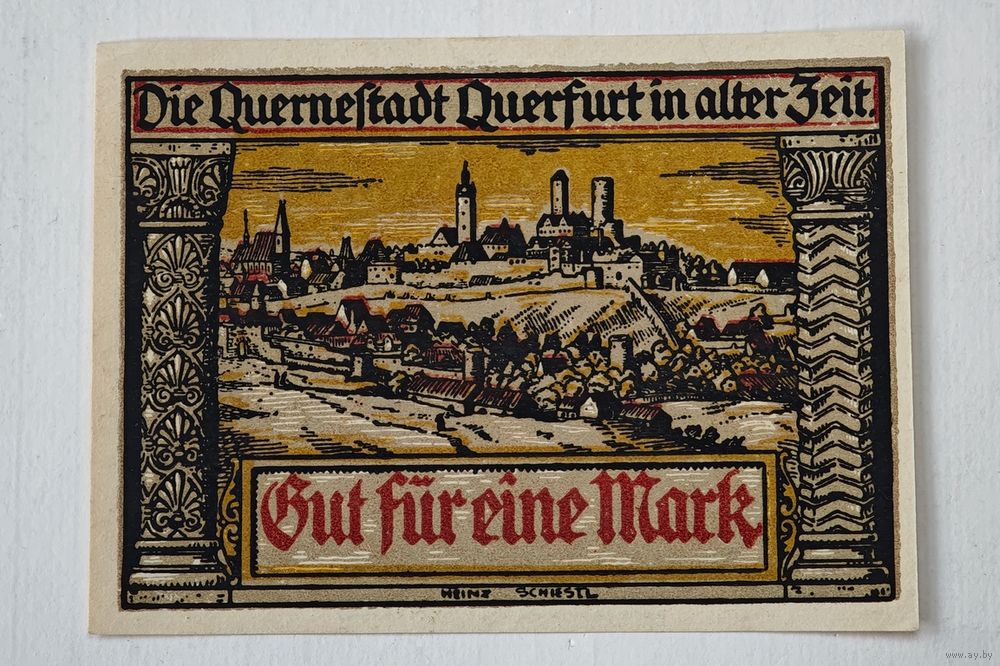 Die Querneſtadt Querfurt in alter Zeit.
Gut für eine Mark
HEINZ SCHIESTL
www.ay.by